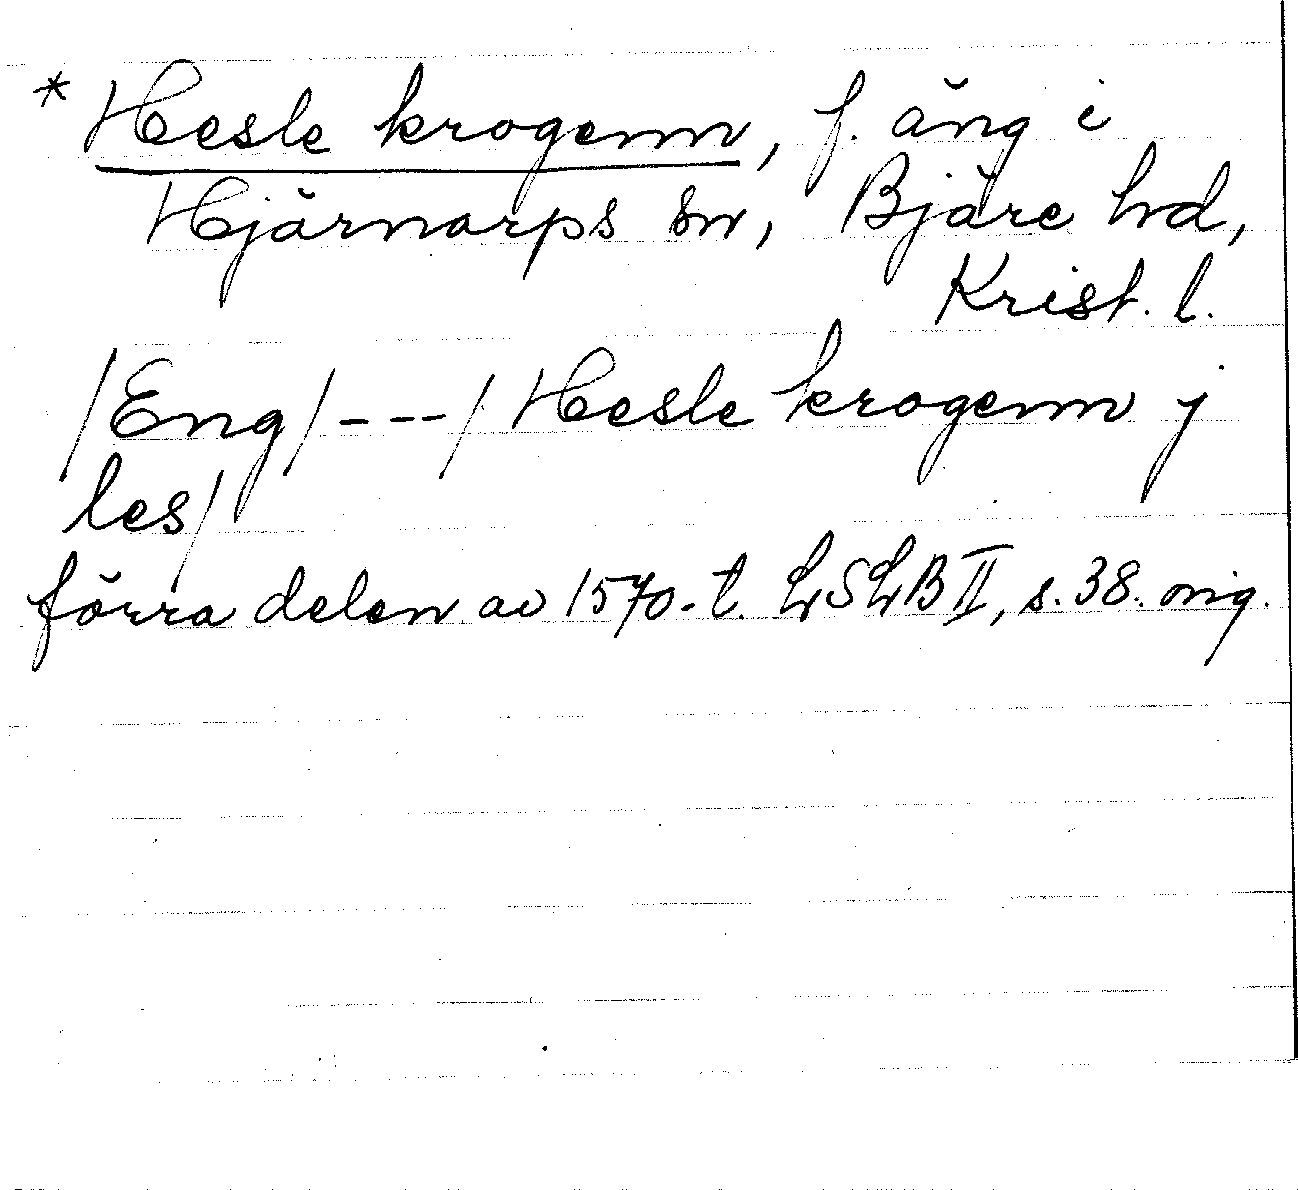 * Hesle krogenn, f. äng i
Hjärnarps sn, Bjäre hd,
Krist. l.
/Eng/---/Hesle krogenn j
les/
förra delen av 1570-t. LSLB II, s. 38. orig.